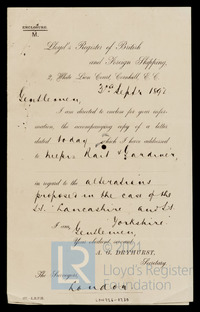 ENCLOSURE.
M.
Lloyd's Register of British
and Foreign Shipping,
2, White Lion Court, Cornhill, E. C.
3rd Septr 1892
Gentlemen,
I am directed to enclose for your infor-
mation, the accompanying copy of a letter
dated today which I have addressed
to Messrs Kait & Gardiner
in regard to the alterations
proposed in the case of the
St. Lancashire and St.
Yorkshire
I am,
Gentlemen,
Your obedient servant,
A. G. DRYHURST,
Secretary.
The Surveyors,
London
Lloyd's Register
Foundation